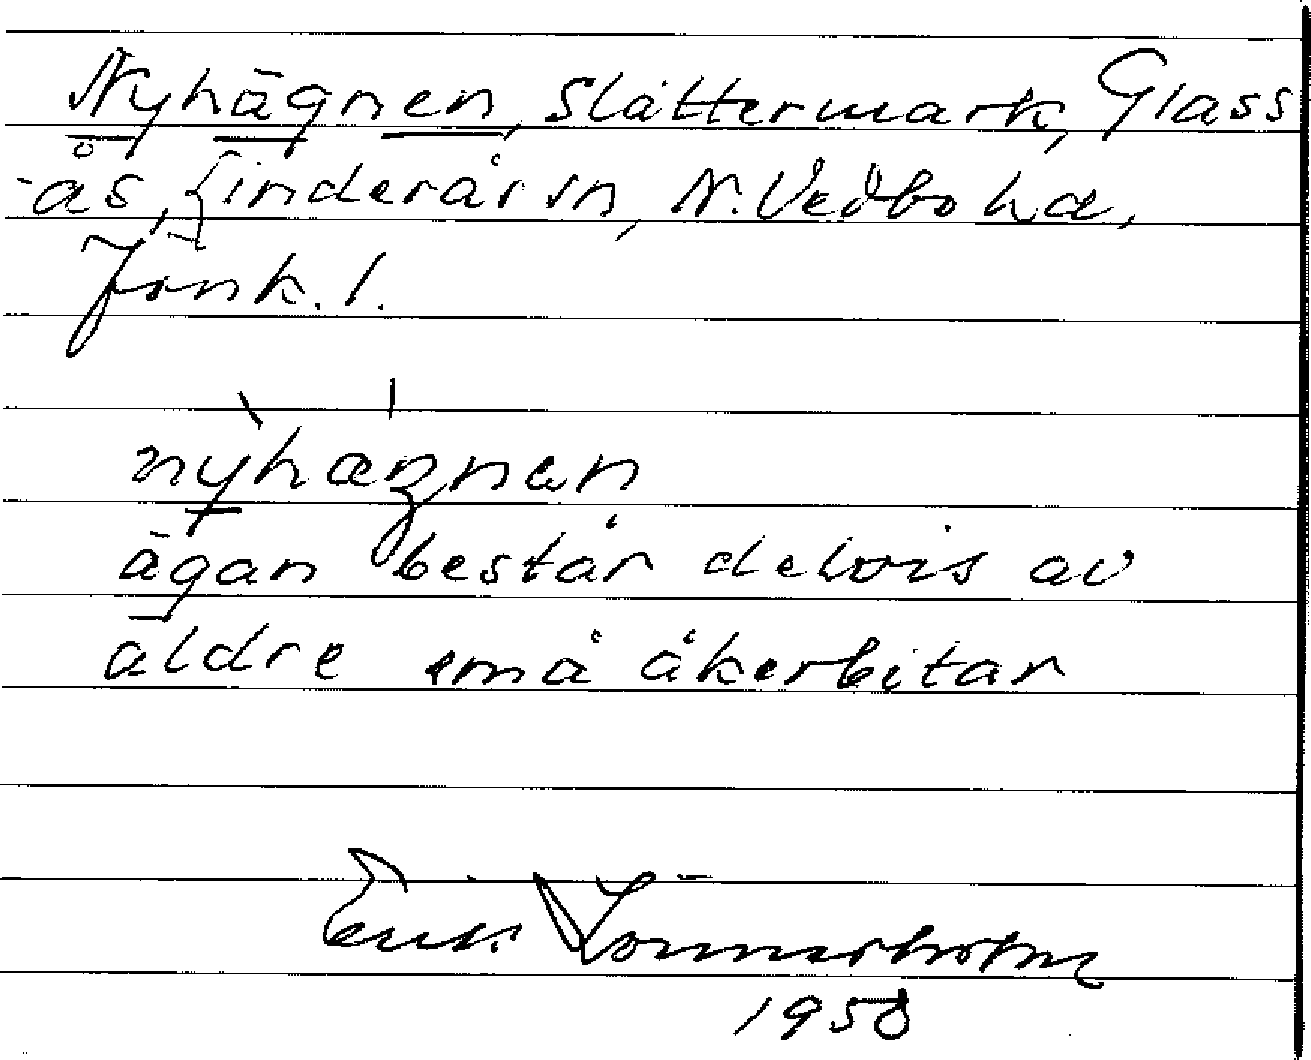 Nyhägnen, Slåttermark, Glass
-ås, Linderås sn, N. Vedbo hd,
Jönk. l.
nyhægnan
ägan består delvis av
äldre små åkerbitar
Erik Lönnerholm
1958